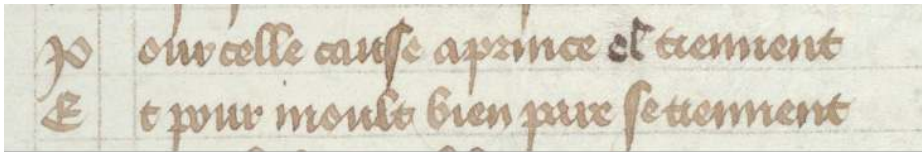 Pour celle cause aprince el tiennent
Et pour moult bien pare se tiennent